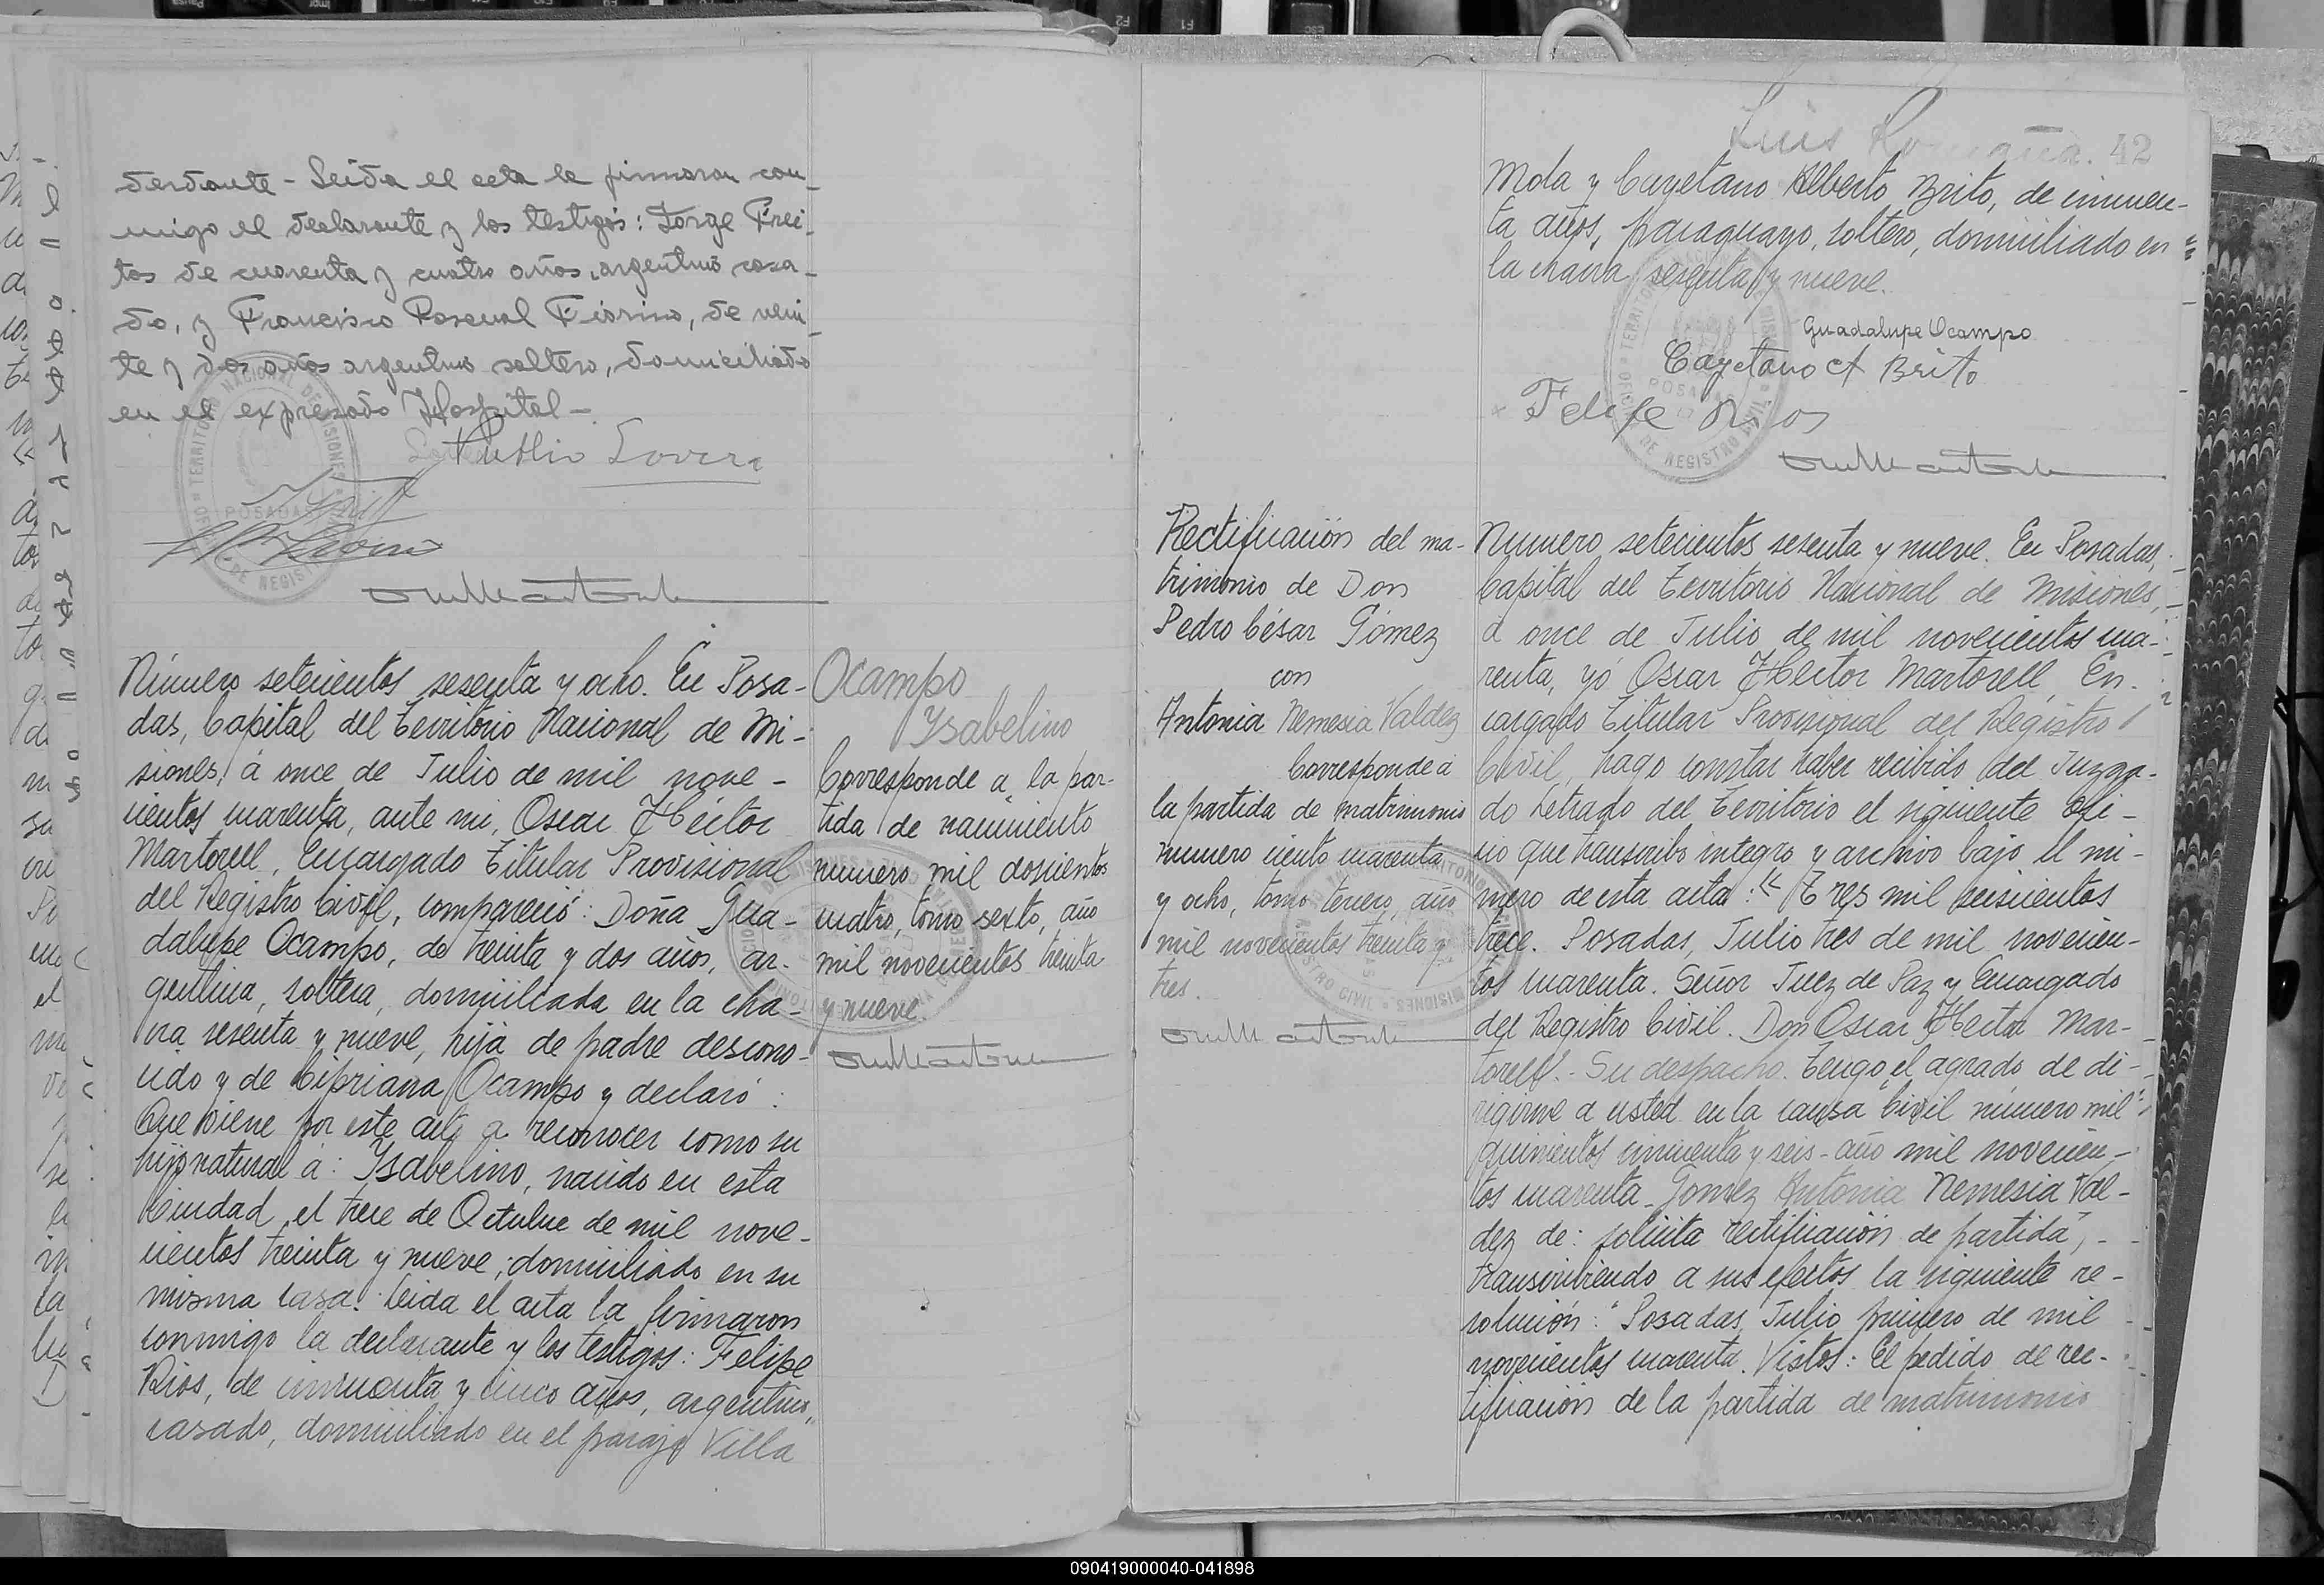 derdante - Leida el acta la firmaron con_
migo el declarante y los testigos: Jorge Frei_
tas de cuarenta y cuatro años, argentino casa_
do, y Francisco Pascual Fiorino, de vein_
te y dos años argentino soltero, domiciliado
en el expresado Hospital -
Publio Lovera
Número setecientos sesenta y ocho. En Posa-
das, Capital del Territorio Nacional de Mi-
siones, á once de Julio de mil nove-
cientos cuarenta, ante mi, Oscar Héctor
Martorell, Encargado Titular Provisional
del Registro Civil, compareció: Doña Gua-
dalupe Ocampo, de treinta y dos años, ar-
gentina, soltera, domiciliada en la cha-
cra sesenta y nueve, hija de padre descono-
cido y de Cipriana Ocampo y declaró:
Que viene por este acto a reconocer como su
hijo natural a: Ysabelino, nacido en esta
Ciudad, el trece de Octubre de mil nove-
cientos treinta y nueve; domiciliado en su
misma casa. Leida el acta la firmaron
conmigo la declarante y los testigos: Felipe
Rios, de cincuenta y cinco años, argentino,
casado, domiciliado en el paraje Villa
Ocampo
Ysabelino
Corresponde a la par-
tida de nacimiento
numero mil doscientos
cuatro, tomo sexto, año
mil novecientos treinta
y nueve.
42
Mola y Cayetano Alberto Brito, de cincuen-
ta años, paraguayo, soltero, domiciliado en
la chacra sesenta y nueve.
Guadalupe Ocampo
Cayetano A Brito
Felipe Rios
Rectificación del ma-
trimonio de Don
Pedro César Gómez
con
Antonia Nemesia Valdez
Corresponde á
la partida de matrimonio
numero ciento cuarenta
y ocho, tomo tercero, año
mil novecientos treinta y
tres.
Numero setecientos sesenta y nueve. En Posadas,
Capital del Territorio Nacional de Misiones,
á once de Julio de mil novecientos cua-
renta, yó Oscar Héctor Martorell, En-
cargado Titular Provisional del Registro
Civil, hago constar haber recibido del Juzga-
do Letrado del Territorio el siguiente ofi-
cio que transcribo integro y archivo bajo el nú-
mero de esta acta: "Tres mil seiscientos
trece. Posadas, Julio tres de mil novecien-
tos cuarenta. Señor Juez de Paz y Encargado
del Registro Civil. Don Oscar Hector Mar-
torell.- Su despacho. Tengo el agrado de di-
rigirme a usted en la causa Civil número mil
quinientos cincuenta y seis - año mil novecien-
tos cuarenta - Gomez Antonia Nemesia Val-
dez de: solicita rectificación de partida",
transcribiendo a sus efectos la siguiente re-
solución: "Posadas, Julio primero de mil
novecientos cuarenta. Vistos: El pedido de rec-
tificación de la partida de matrimonio
090419000040-041898